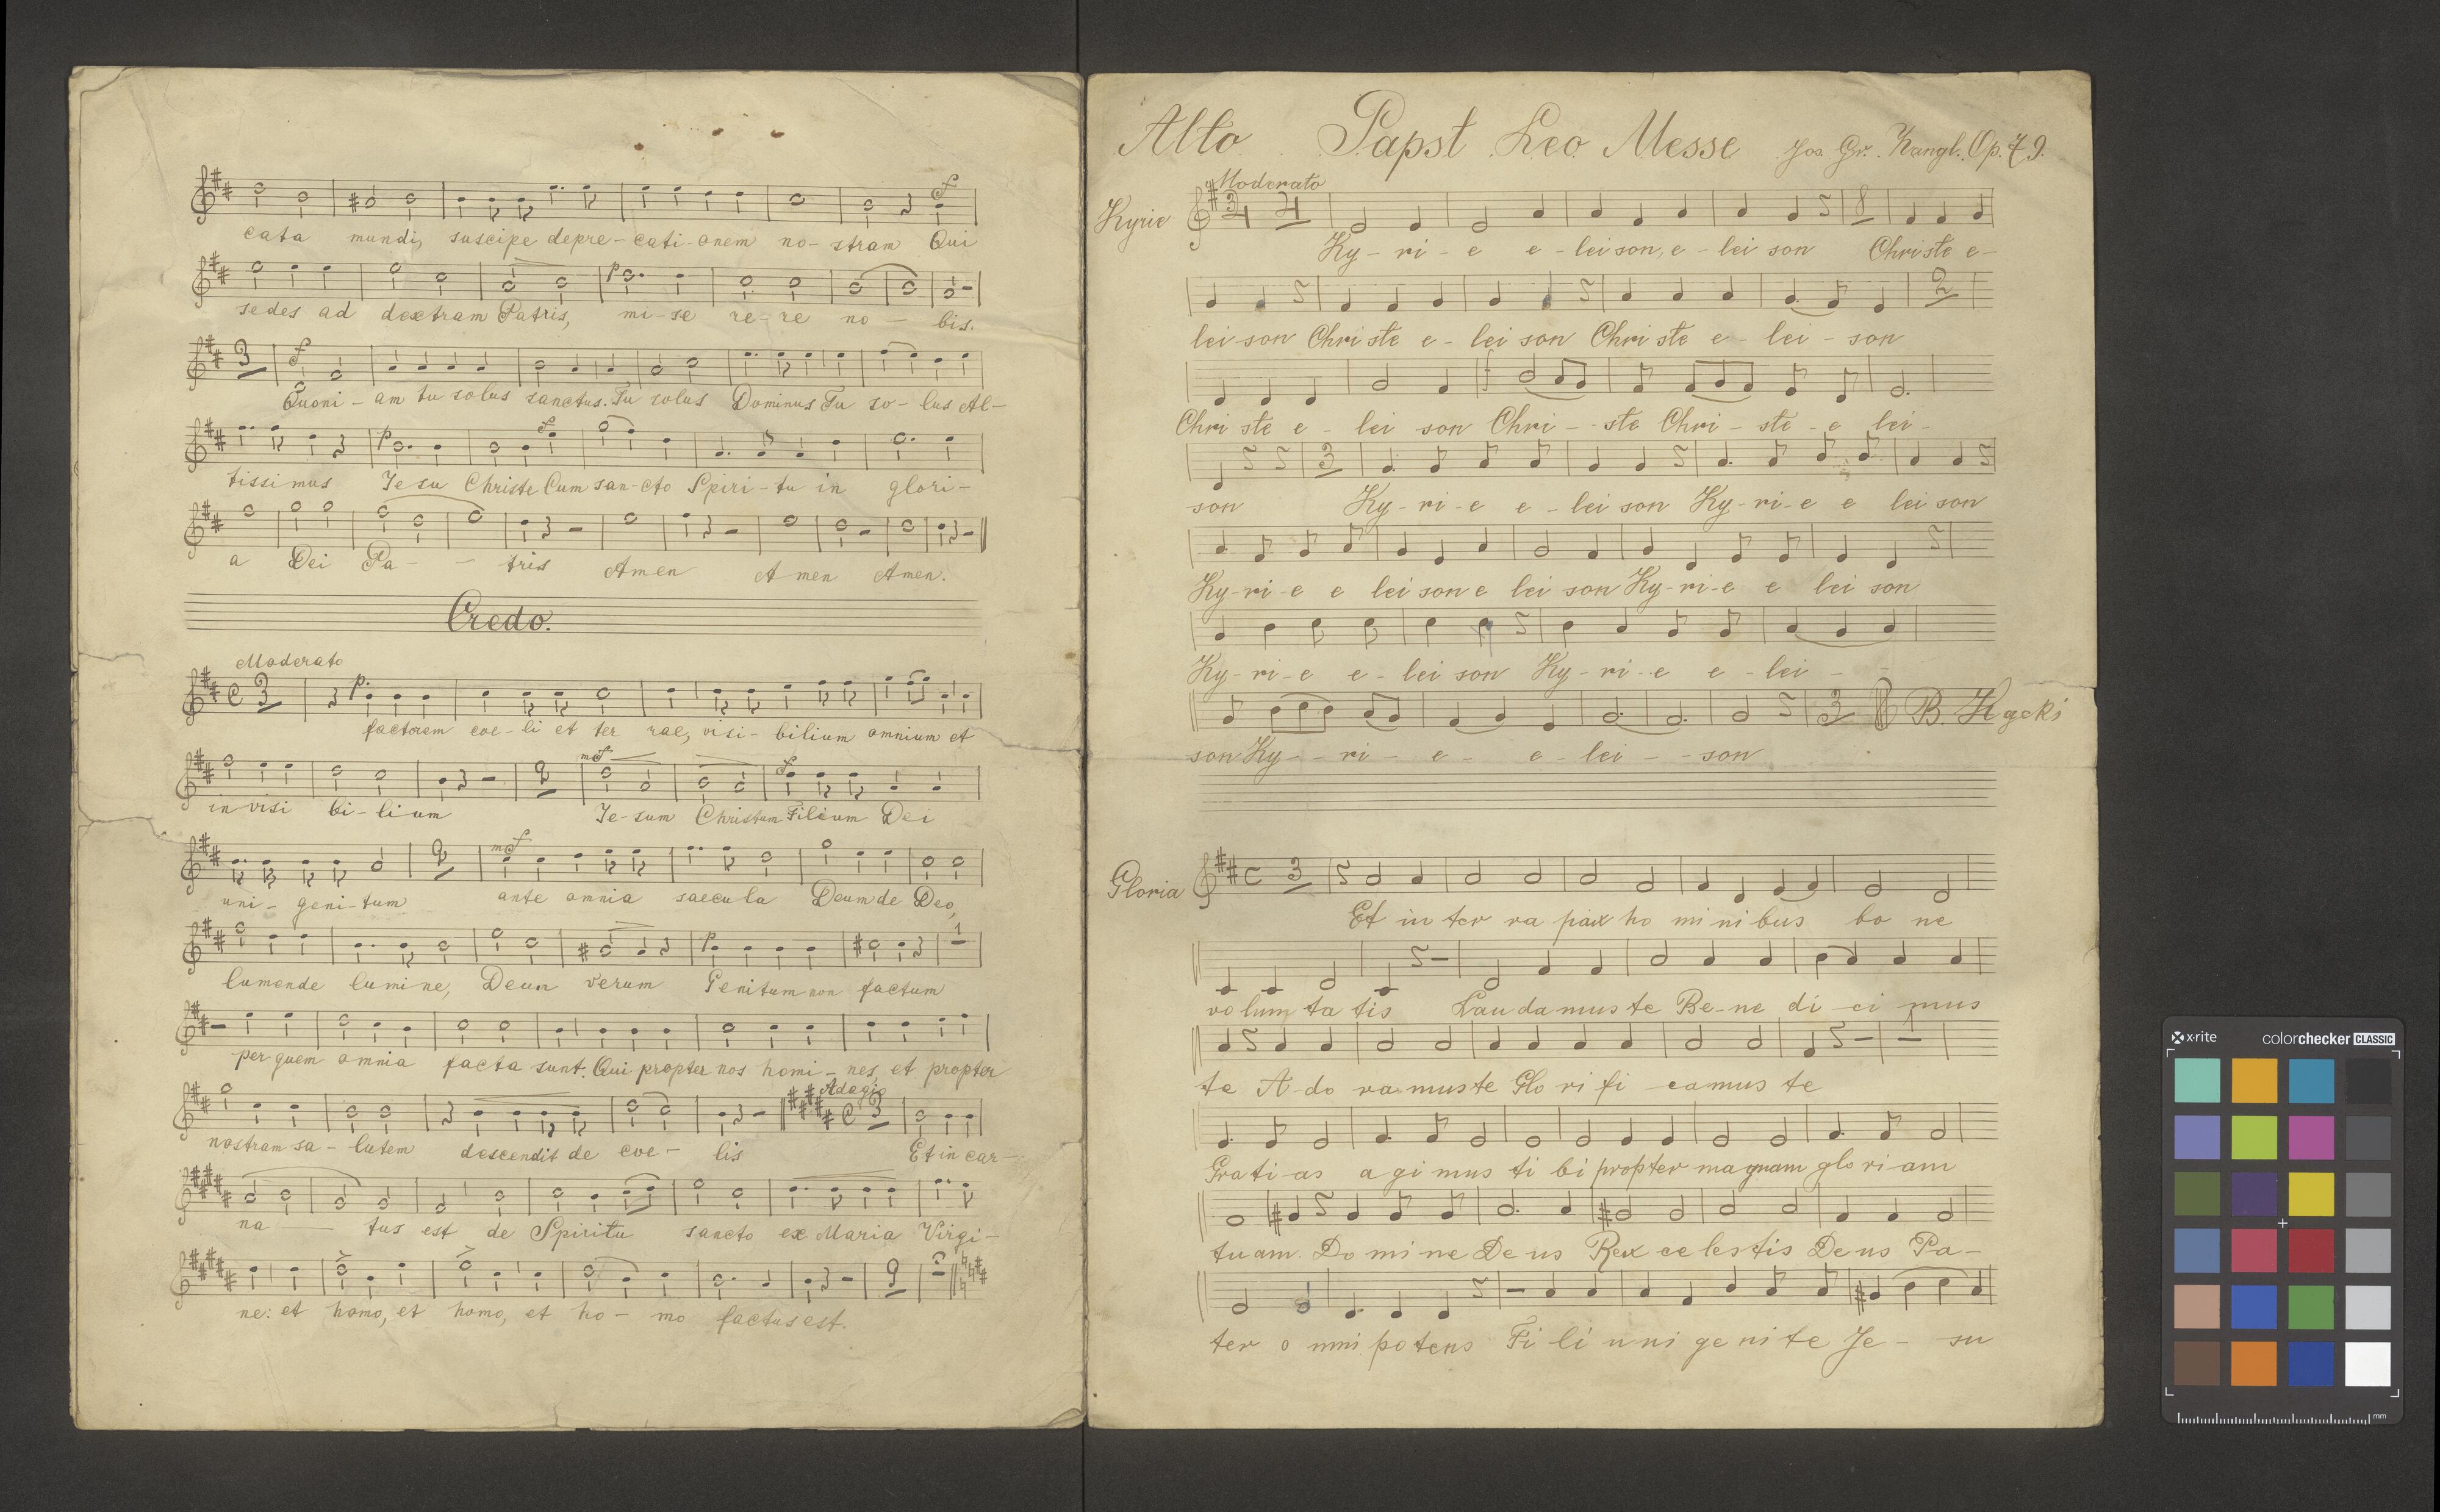 f
cata mundi, suscipe depre-cati-onem no-stram Qui
p
sedes ad dextram Patris, mi-se re-re no — bis.
3 f
Quoni-am tu solus sanctus. Tu solus Dominus Tu so-lus Al-
p f
tissimus Jesu Christe Cum san-cto Spiri-tu in glori-
a Dei Pa- - tris Amen Amen Amen.
Credo.
Moderato
C 3 p.
factorem coe-li et ter rae, visi-bilium omnium et
2 mf f
in visi bi-lium Je-sum Christum Filium Dei
2 mf
uni-geni-tum ante omnia saecula Deum de Deo,
p 1
lumende lumine, Deun verum Genitum non factum
per quem omnia facta sunt. Qui propter nos homi-nes, et propter
Adagio
C 3
nostram sa-lutem descendit de coe- lis Et in car-
na — tus est de Spiritu sancto ex Maria Virgi-
2
ne: et homo, et homo, et ho-mo factus est.
Alto Papst Leo Messe Jos. Gr. Zangl. Op. 79.
Moderato
Kyrie 3 4 4 8
Ky-ri-e e-leison, e-lei son Christe e-
2
lei-son Christe e-lei son Christe e-lei-son
f
Christe e-lei son Chri--ste Chri-ste-e lei-
3
son Ky-ri-e e-lei son Ky-ri-e e lei son
Ky-ri-e e lei son e lei son Ky-ri-e e lei son
Ky-ri-e e-lei son Ky-ri-e e-lei-
3 B.
son Ky--ri-e- e-lei--son
Gloria C 3
Et in ter ra pax ho mi ni bus bo ne
vo lum ta tis Lau da mus te Be-ne di-ci mus
1
te A-do ra mus te Glo ri fi camus te
Grati-as agimus ti bi propter magnam glo ri am
tuam. Do mi ne De us Rex ce lestis De us Pa-
ter o mni po tens Fi li u ni ge ni te Je- su
x-rite colorchecker CLASSIC
mm